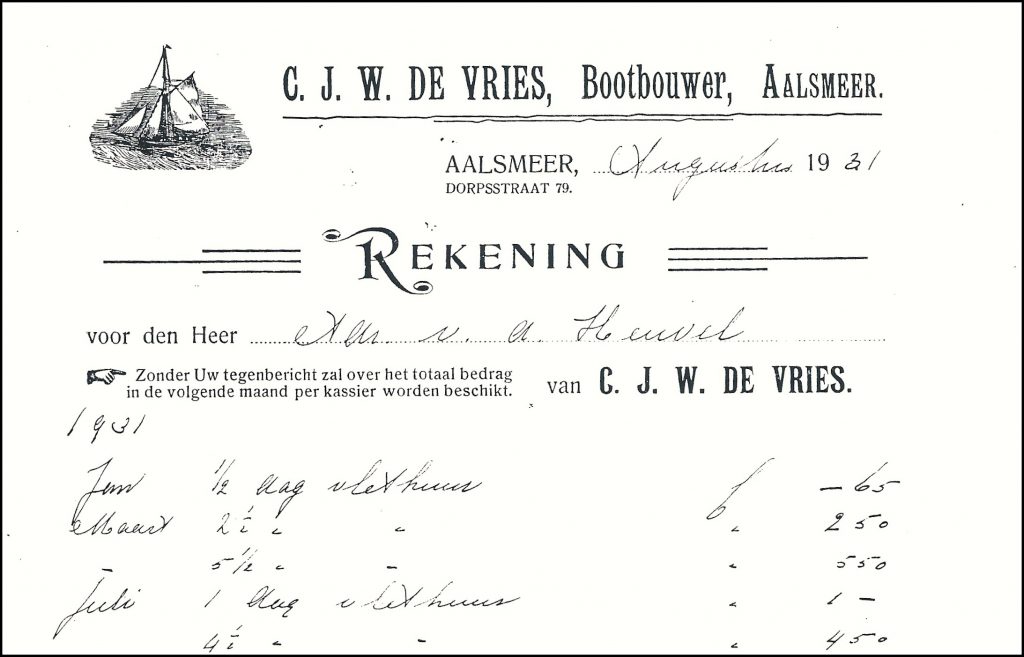 C. J. W. DE VRIES, Bootbouwer, AALSMEER.
AALSMEER, Augustus 1931
DORPSSTRAAT 79.
REKENING
voor den Heer Adr. v. d. Heuvel
Zonder Uw tegenbericht zal over het totaal bedrag
in de volgende maand per kassier worden beschikt.
van C. J. W. DE VRIES.
1931
Jan ½ dag vlethuur f – 65
Maart 2½ " " " 2 50
– 5½ " – " 5 50
Juli 1 dag vlethuur " 1 –
4½ " – " 4 50